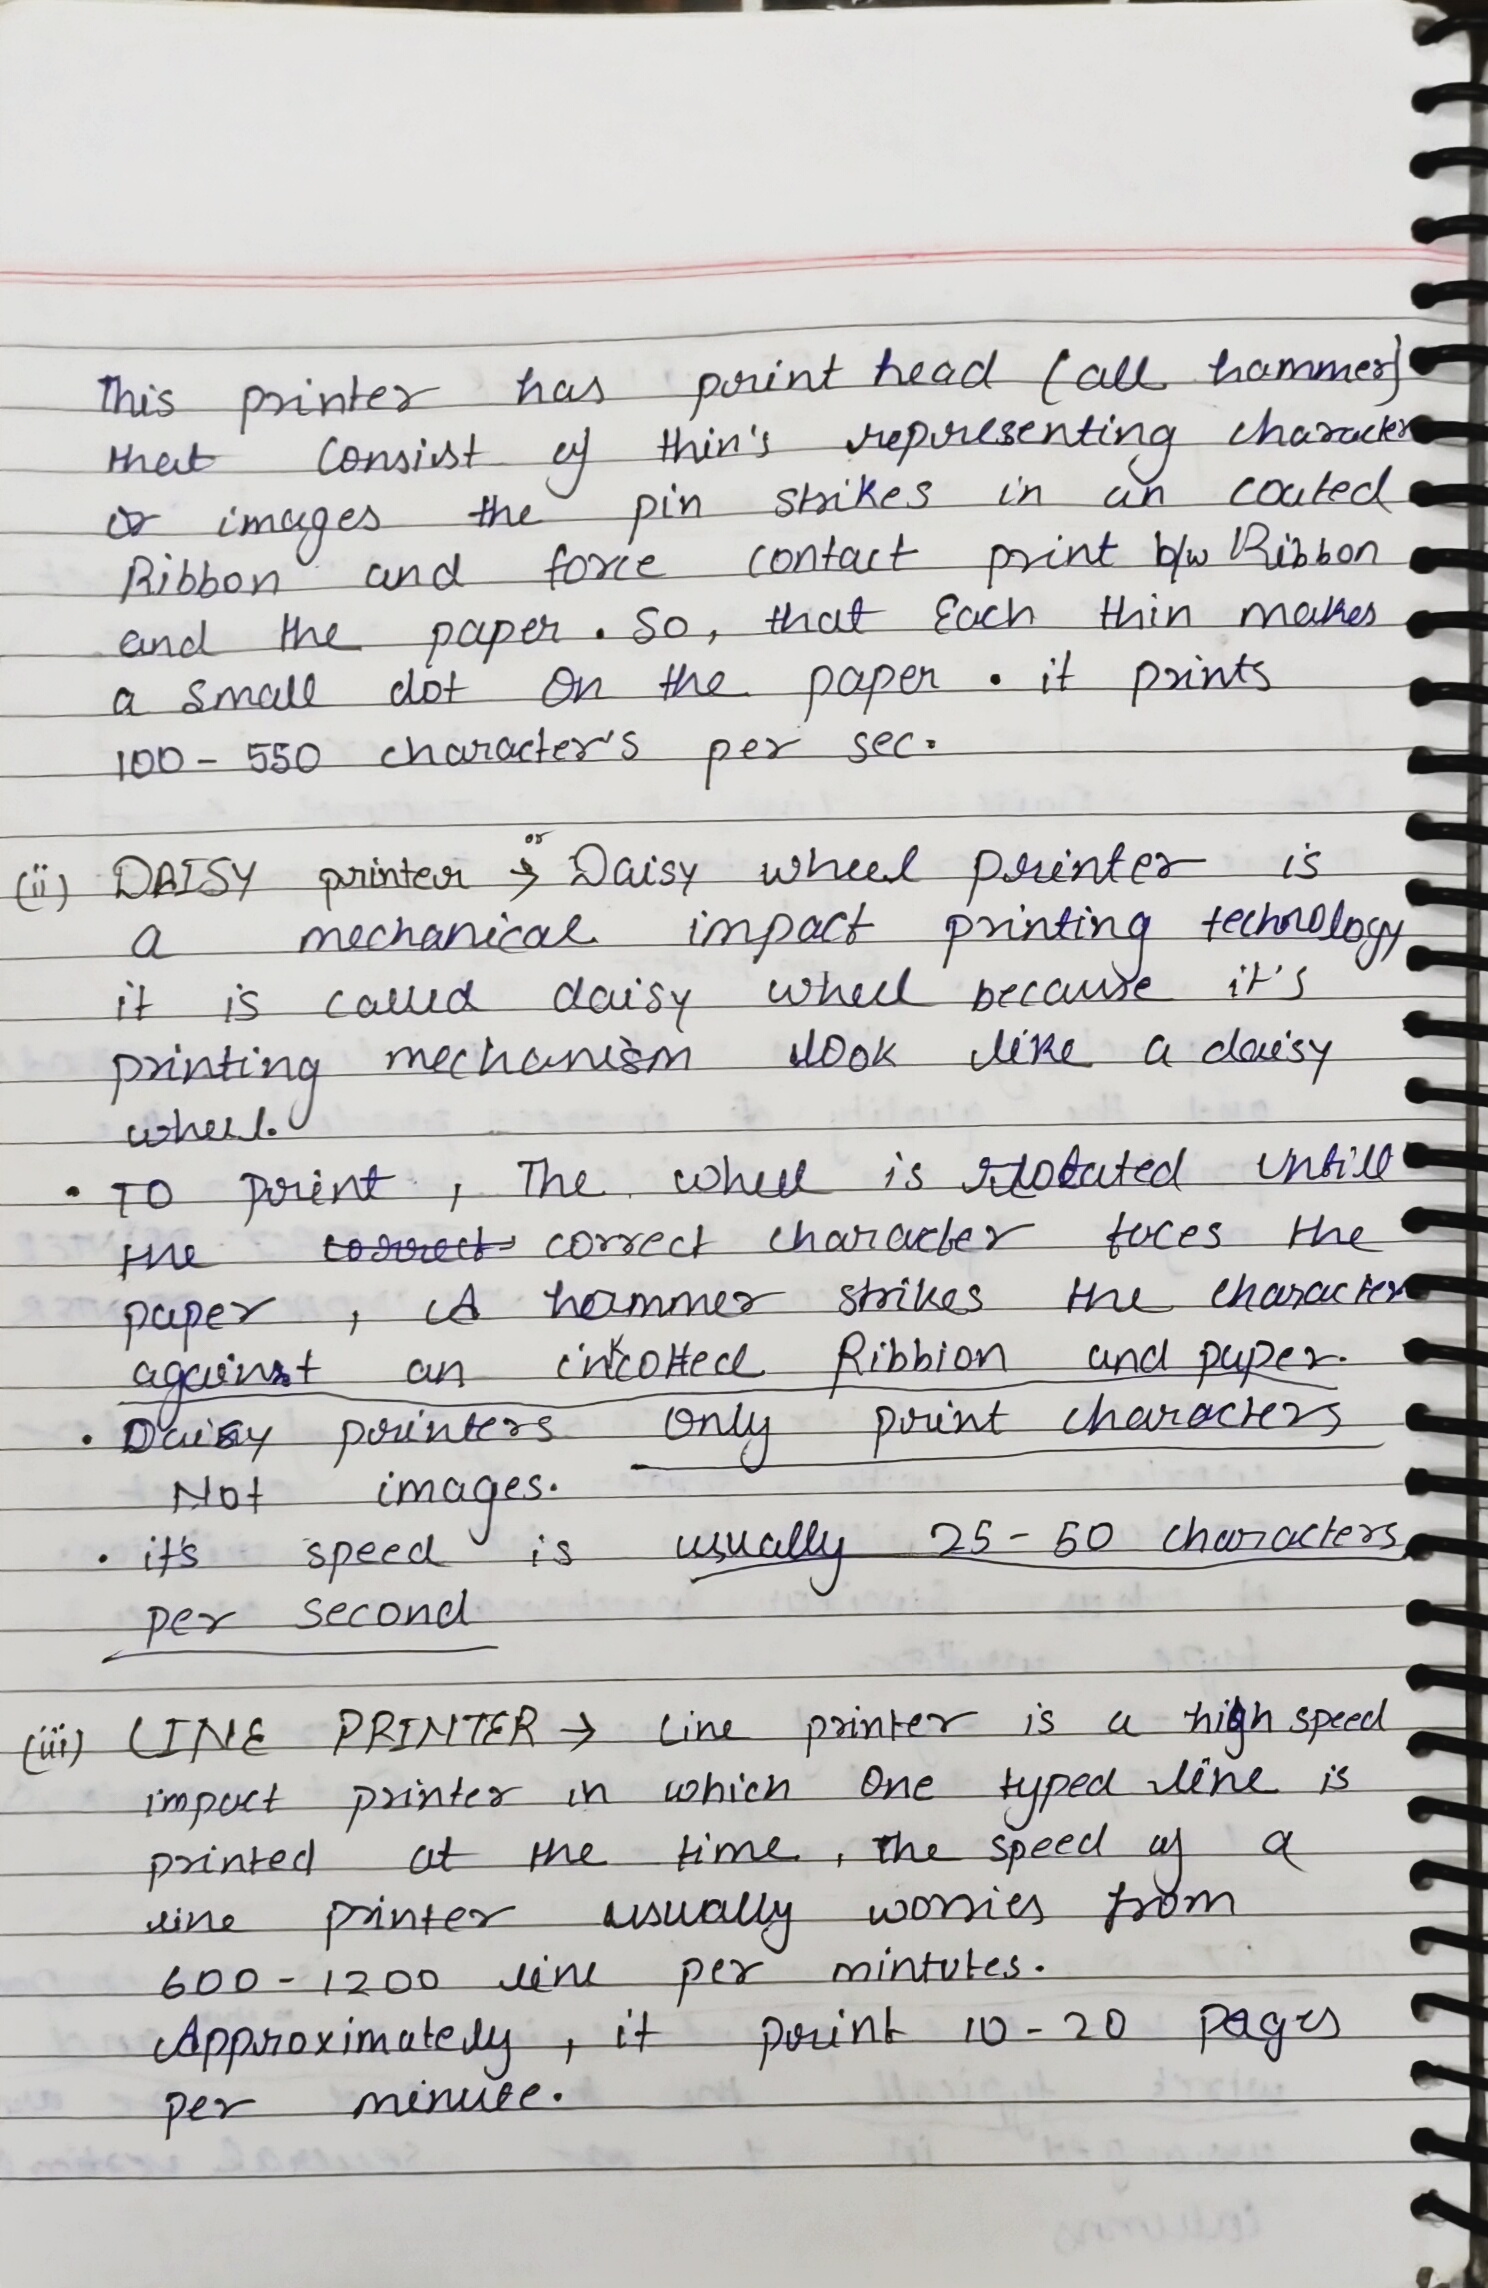 This printer has print head (all hammer)
that consist of thin's representing character
or images the pin strikes in an coated
Ribbon and force contact print b/w Ribbon
and the paper. So, that Each thin makes
a small dot on the paper. it prints
100 - 550 character's per sec.
(ii) DAISY printer or → Daisy wheel printer is
a mechanical impact printing technology
it is called daisy wheel because it's
printing mechanism look like a daisy
wheel.
• TO print, The wheel is rotated untill
the correct correct character faces the
paper, A hammer strikes the character
against an inkcotted Ribbion and paper.
• Daisy printers only print characters
Not images.
• it's speed is usually 25 - 50 characters
per second
(iii) LINE PRINTER → Line printer is a high speed
impact printer in which one typed line is
printed at the time, the speed of a
line printer usually worries from
600 - 1200 line per mintutes.
Approximately, it print 10 - 20 pages
per minute.